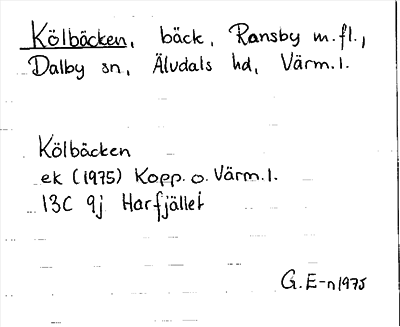 Kölbäcken, bäck, Ransby m.fl.,
Dalby sn, Älvdals hd, Värm.l.
Kölbäcken
ek (1975) Kopp. o. Värm.l.
13C 9j Harfjället
G.E-n 1975